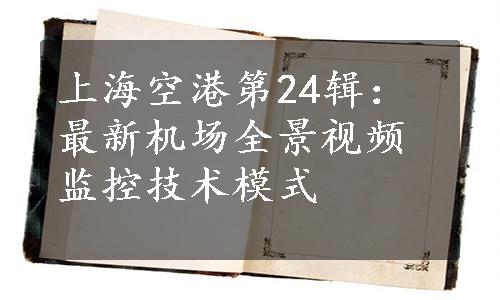 上海空港第24辑：
最新机场全景视频
监控技术模式